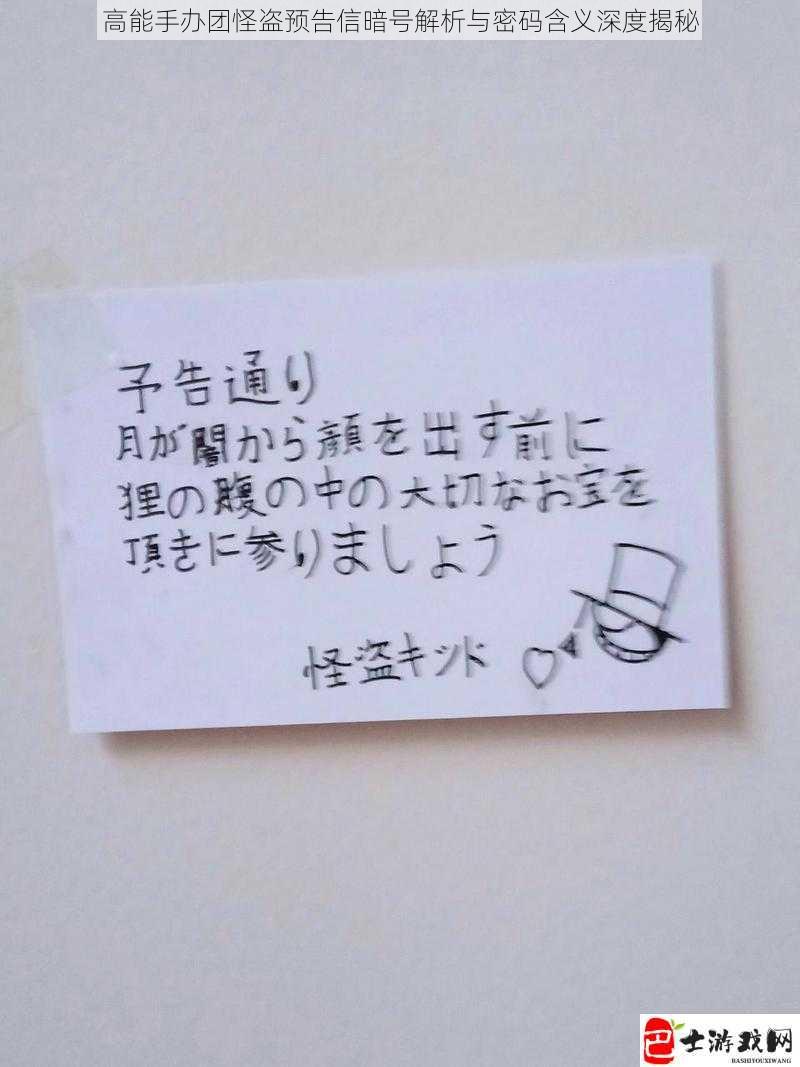 高能手办团怪盗预告信暗号解析与密码含义深度揭秘
予告通り
月が闇から顔を出す前に
狸の腹の中の大切なお宝を
頂きに参りましょう
怪盗キッド
巴士游戏网
BASHIYOUXIWANG